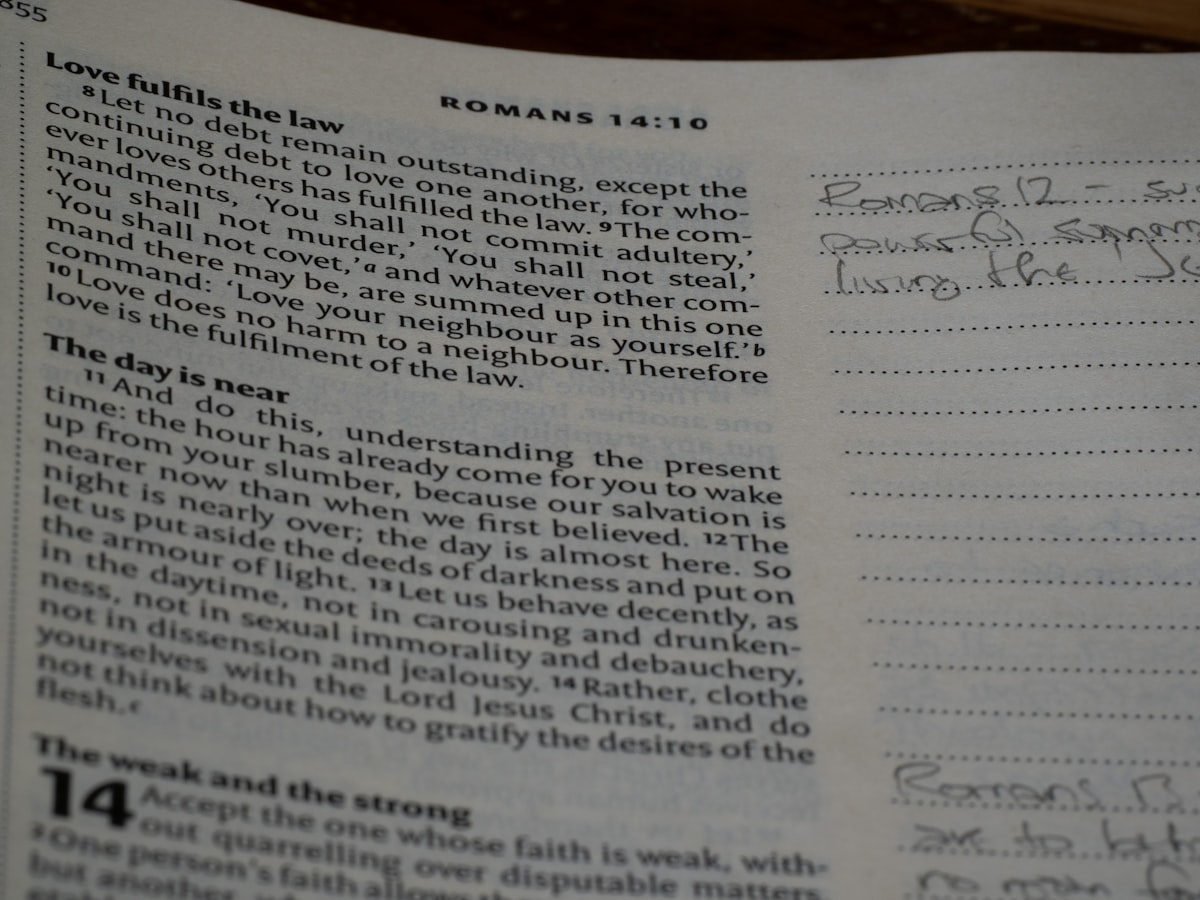 855
ROMANS 14:10
Love fulfils the law
8 Let no debt remain outstanding, except the
continuing debt to love one another, for who-
ever loves others has fulfilled the law. 9 The com-
mandments, ‘You shall not commit adultery,’
‘You shall not murder,’ ‘You shall not steal,’
‘You shall not covet,’a and whatever other com-
mand there may be, are summed up in this one
command: ‘Love your neighbour as yourself.’b
10 Love does no harm to a neighbour. Therefore
love is the fulfilment of the law.
The day is near
11 And do this, understanding the present
time: the hour has already come for you to wake
up from your slumber, because our salvation is
nearer now than when we first believed. 12 The
night is nearly over; the day is almost here. So
let us put aside the deeds of darkness and put on
the armour of light. 13 Let us behave decently, as
in the daytime, not in carousing and drunken-
ness, not in sexual immorality and debauchery,
not in dissension and jealousy. 14 Rather, clothe
yourselves with the Lord Jesus Christ, and do
not think about how to gratify the desires of the
flesh.c
The weak and the strong
14 Accept the one whose faith is weak, with-
out quarrelling over disputable matters.
2 One person's faith allows
but another
Romans 12 -
powerful
living the
Romans 13
are to
no man